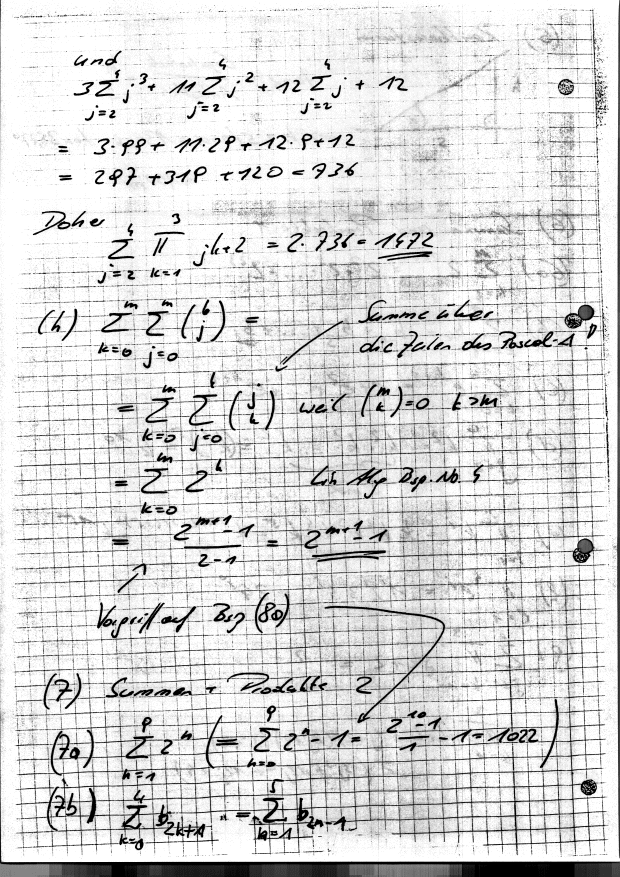 und
3 ∑_{j=2}^{4} j³ + 11 ∑_{j=2}^{4} j² + 12 ∑_{j=2}^{4} j + 12
= 3·99 + 11·29 + 12·9 + 12
= 297 + 319 + 120 = 736
Daher
∑_{j=2}^{4} ∏_{k=1}^{3} jk+2 = 2·736 = 1472
(h) ∑_{k=0}^{m} ∑_{j=0}^{m} (k j) = Summe über
die Zeilen des Pascal-Δ!
= ∑_{k=0}^{m} ∑_{j=0}^{k} (j k) weil (m k) = 0 k>m
= ∑_{k=0}^{m} 2^k Lin Alg Bsp. No. 4
= (2^{m+1} - 1)/(2-1) = 2^{m+1} - 1
Vorgriff auf Bsp (80)
(7) Summen + Produkte 2
(7a) ∑_{n=1}^{9} 2^n ( = ∑_{n=0}^{9} 2^n - 1 = (2^{10} - 1)/1 - 1 = 1022 )
(7b) ∑_{k=0}^{4} b_{2k+1} = ∑_{n=1}^{5} b_{2n-1}